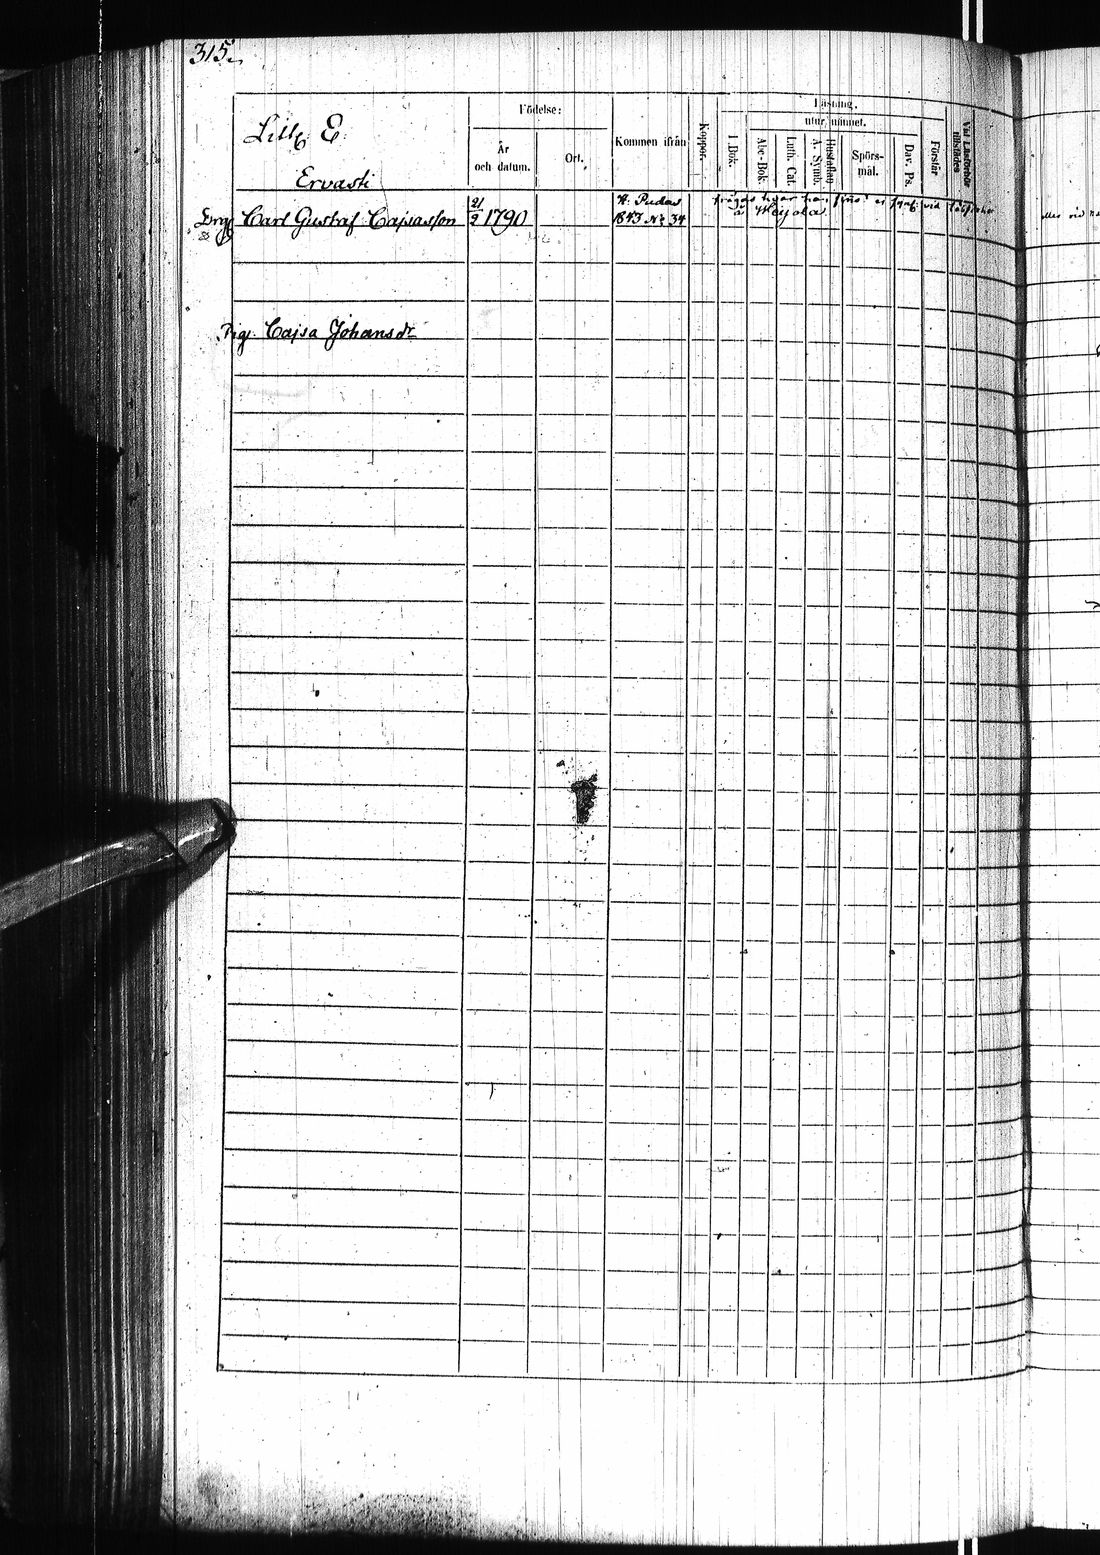 315.
Lill E
Ervasti
Födelse:
År
och datum.
Ort.
Kommen ifrån
Koppor.
Läsning,
utur minnet.
I Bok.
Abc-Bok.
Luth. Cat.
Hustaflan
A. Symb.
Spörs-
mål.
Dav. Ps.
Förstår
Vid Läseförhör
tillstädes
Drg Carl Gustaf Cajsasson 21/2 1790 H. Pudas
1843 No 34
frågas hvar han
vid
Pig. Cajsa Johansdr